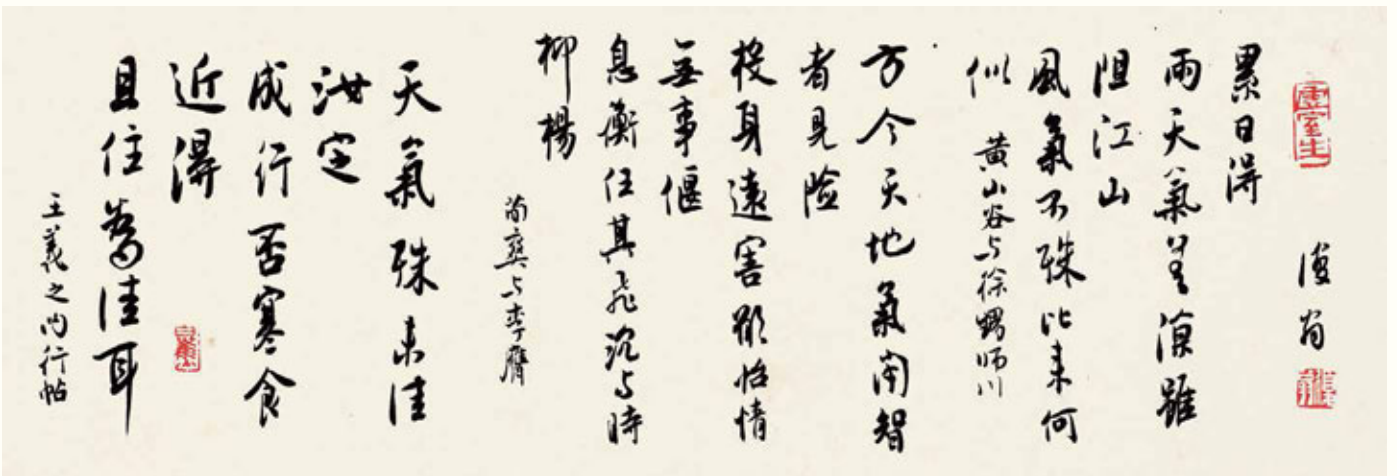 虚室生
翁
累日得
雨天氣差涼雖
阻江山
風氣不殊比来何
似 黄山谷与徐甥师川
方今天地氣闭智
者見险
投身遠害欲怡情
無事偃
息衡任其飛沉与時
抑揚
荀爽与李膺
天氣殊未佳
汝定
成行否寒食
近得
且住為佳耳
王羲之内行帖